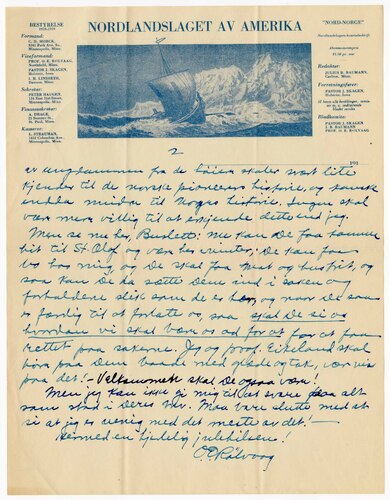 NORDLANDSLAGET AV AMERIKA
BESTYRELSE
Formand:
Minneapolis, Minn.
Viseformand:
PROF. O. E. ROLVAAG,
Northfield, Minn.
PASTOR J. SKAGEN,
J. H. LINSETH,
Dawson, Minn.
Sekretær:
PETER HAUGEN,
Minneapolis, Minn.
Finanssekretær:
St. Paul, Minn.
Kasserer:
L. STRAUMAN,
Minneapolis, Minn.
"NORD-NORGE"
Nordlandslagets kvartalsskrift
Abonnementspris
Redaktør:
JULIUS B. BAUMANN,
Carlton, Minn.
Forretningsfører:
PASTOR J. SKAGEN,
Bladkomite:
PASTOR J. SKAGEN,
J. B. BAUMANN
PROF. O. E. ROLVAAG
2
191
av ungdommen fra de høiere skoler vet lite
kjender til de norske pionerers historie, og kanske
endda mindre til Norges historie. Ingen skal
være mere villig til at erkjende dette end jeg.
Men se nu her, Buslett: nu kan De faa komme
hit til St. Olaf og være her i vinter; De kan faa
bo hos mig, og De skal faa mat og husfrit, og
saa kan De ha sætte Dem ind i saken og
forholdene slik som de er her, og naar De saa
er færdig til at forlate os, saa skal De si os
hvordan vi skal bære os ad for at faa
rettet paa sakerne. Jeg og prof. Eikeland skal
høre paa Dem baade med glæde og tak, vær viss
paa det! – Velkommen skal De ogsaa være!
Men jeg kan ikke gi mig til at svare paa alt
som stod i Deres brev. Maa bare slutte med at
si at jeg er uenig med det meste av det! –
Hermed en hjertelig julehilsen!
O E Rölvaag